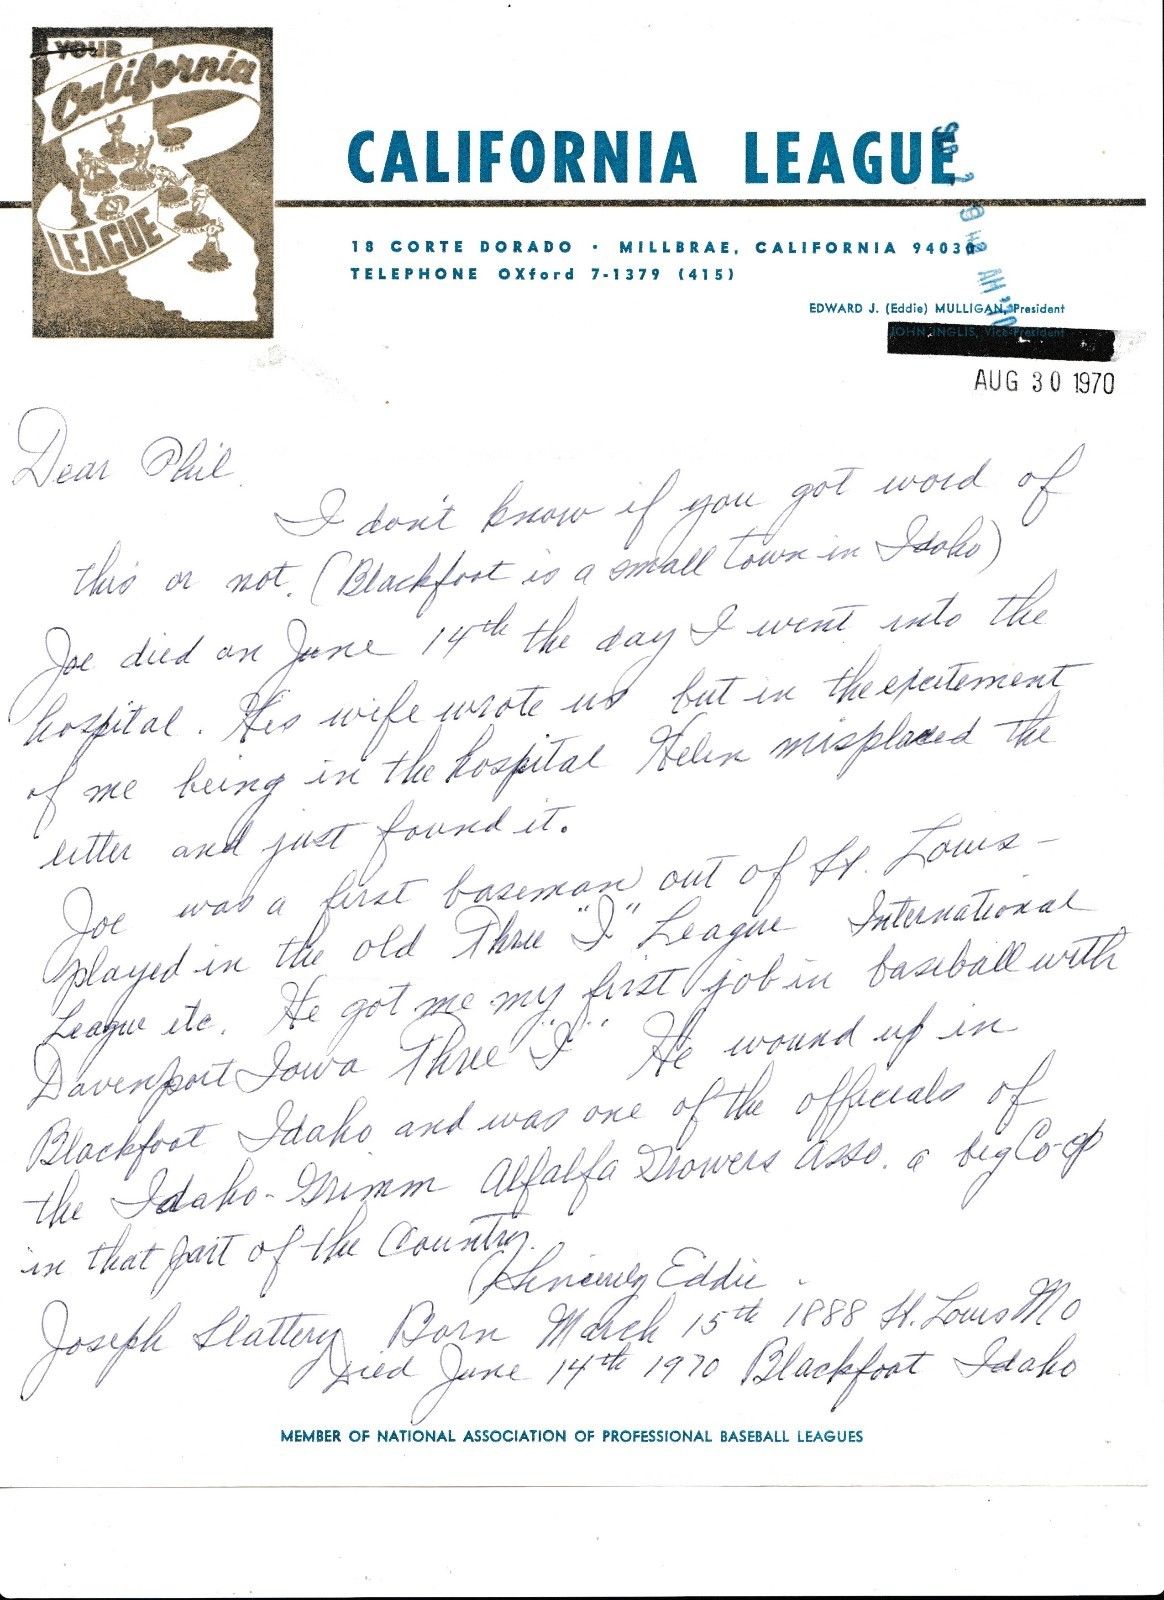 YOUR
California
LEAGUE
RENO
CALIFORNIA LEAGUE
18 CORTE DORADO · MILLBRAE, CALIFORNIA 94030
TELEPHONE OXford 7-1379 (415)
EDWARD J. (Eddie) MULLIGAN, President
JOHN INGLIS, Vice-President
AUG 30 1970
Dear Phil.
I don't know if you got word of
this or not. (Blackfoot is a small town in Idaho)
Joe died on June 14th the day I went into the
hospital. His wife wrote us but in the excitement
of me being in the hospital Helen misplaced the
letter and just found it.
Joe was a first baseman out of St. Louis -
played in the old Three "I" League International
League etc. He got me my first job in baseball with
Davenport Iowa Three "I" He wound up in
Blackfoot Idaho and was one of the officials of
the Idaho-Grimm Alfalfa Growers Asso. a big Co-op
in that part of the Country.
Sincerely Eddie.
Joseph Slattery Born March 15th 1888 St. Louis Mo
Died June 14th 1970 Blackfoot Idaho
MEMBER OF NATIONAL ASSOCIATION OF PROFESSIONAL BASEBALL LEAGUES